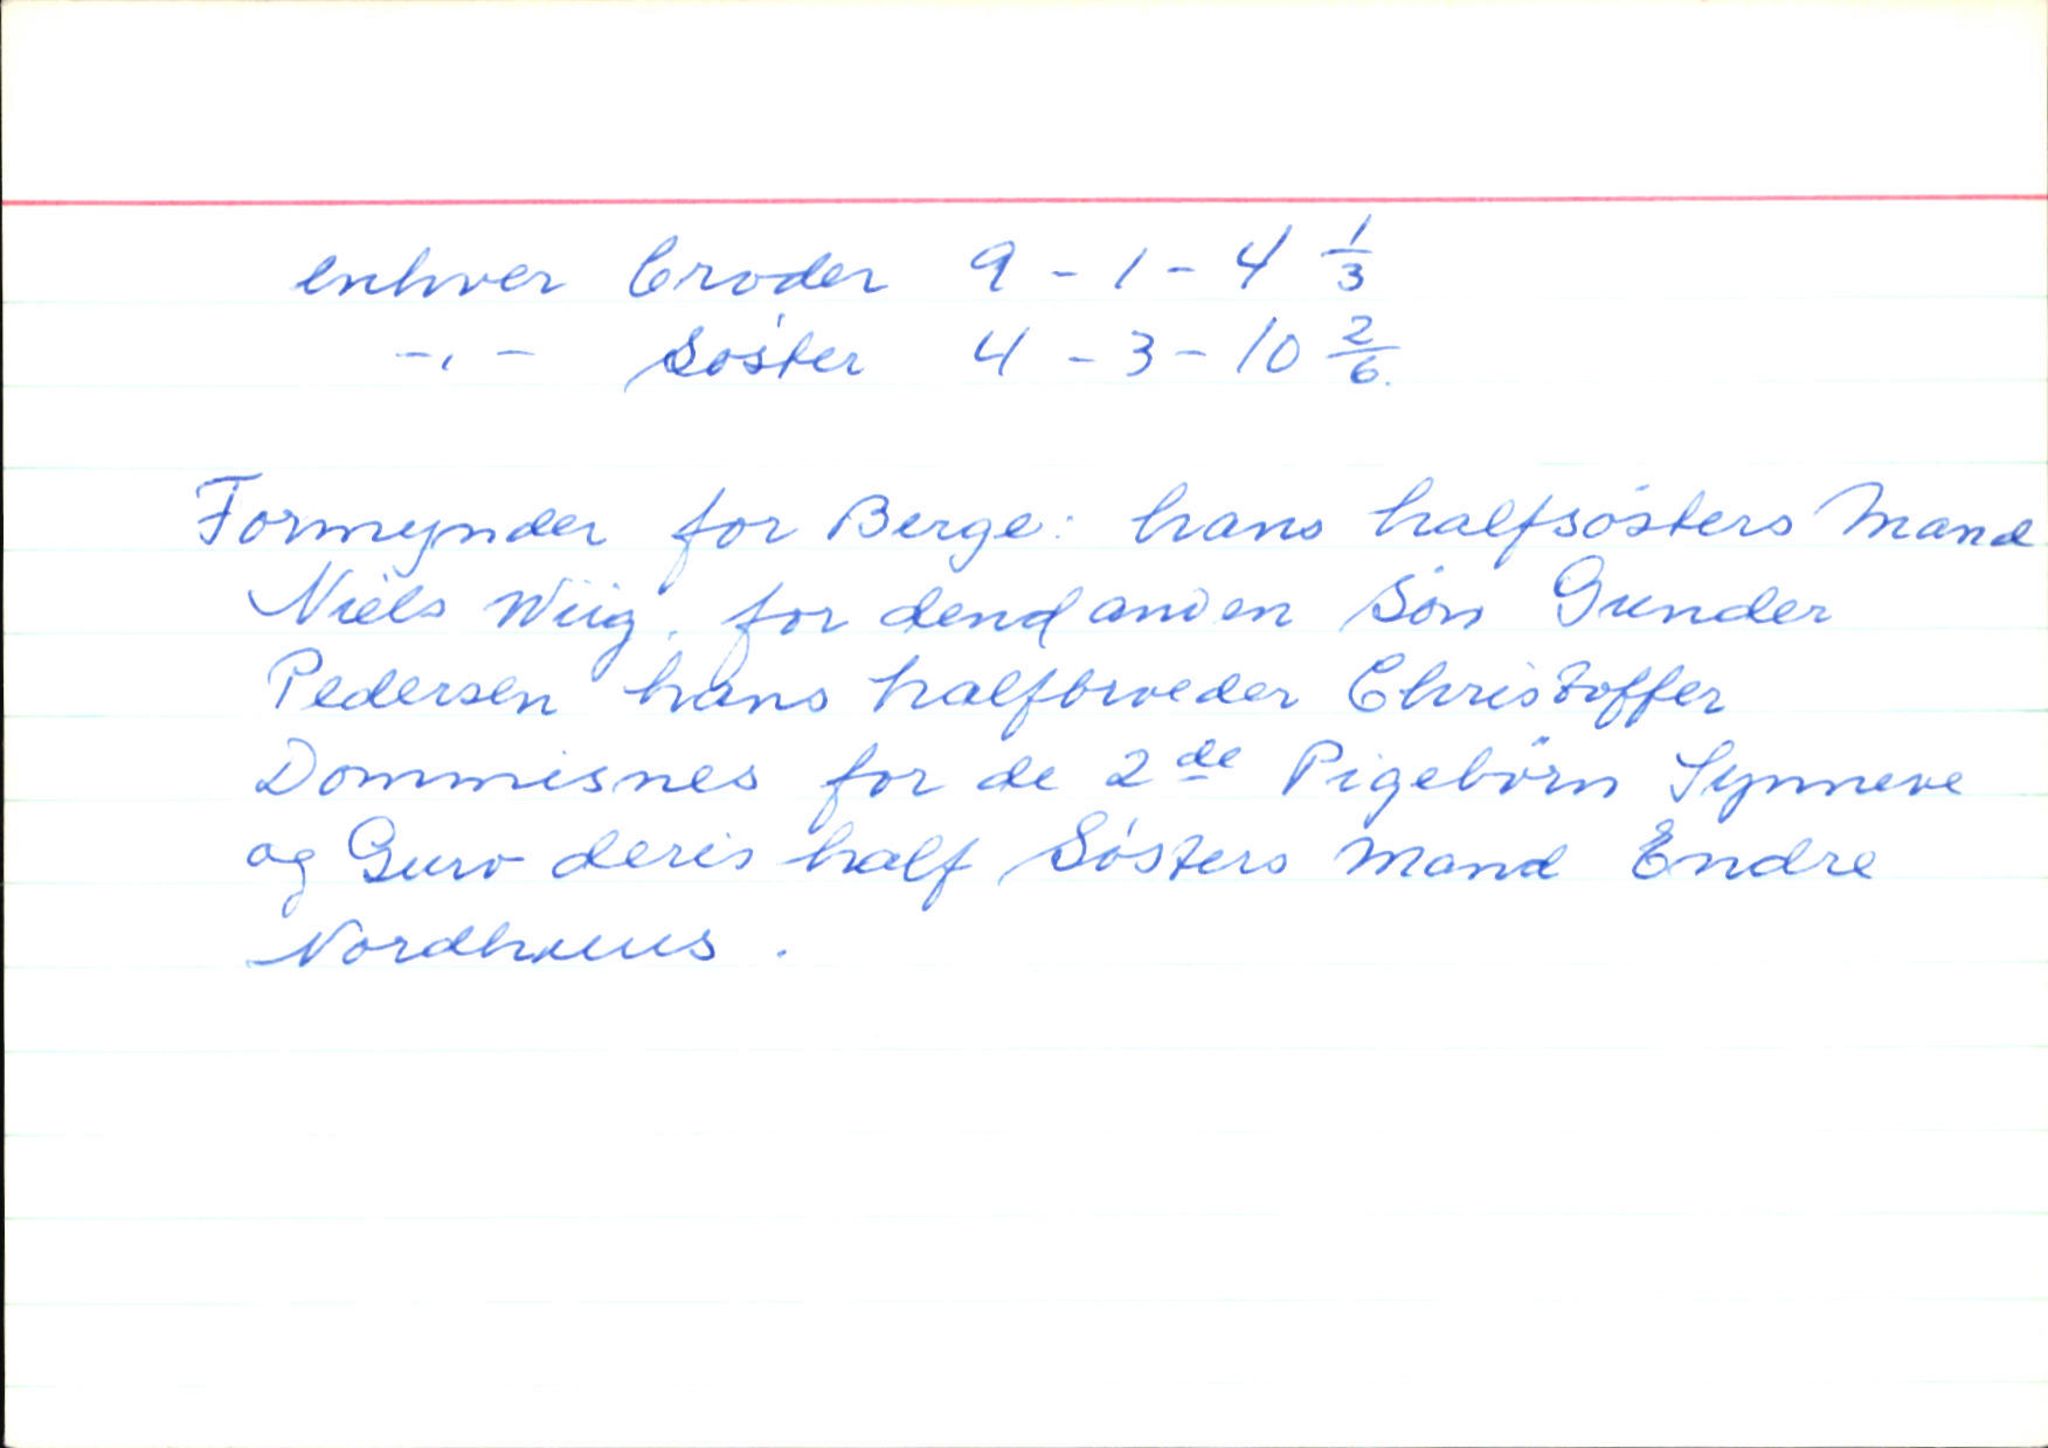 enhver broder 9 - 1 - 4 1/3
-,- Søster 4 - 3 - 10 2/6.
Formynder for Berge: hans halfsøsters Mand
Niels Wiig, for dend anden Søn Gunder
Pedersen hans halfbroeder Christoffer
Dommisnes for de 2de Pigebörn Synneve
og Guro deris half Søsters Mand Endre
Nordhuus.